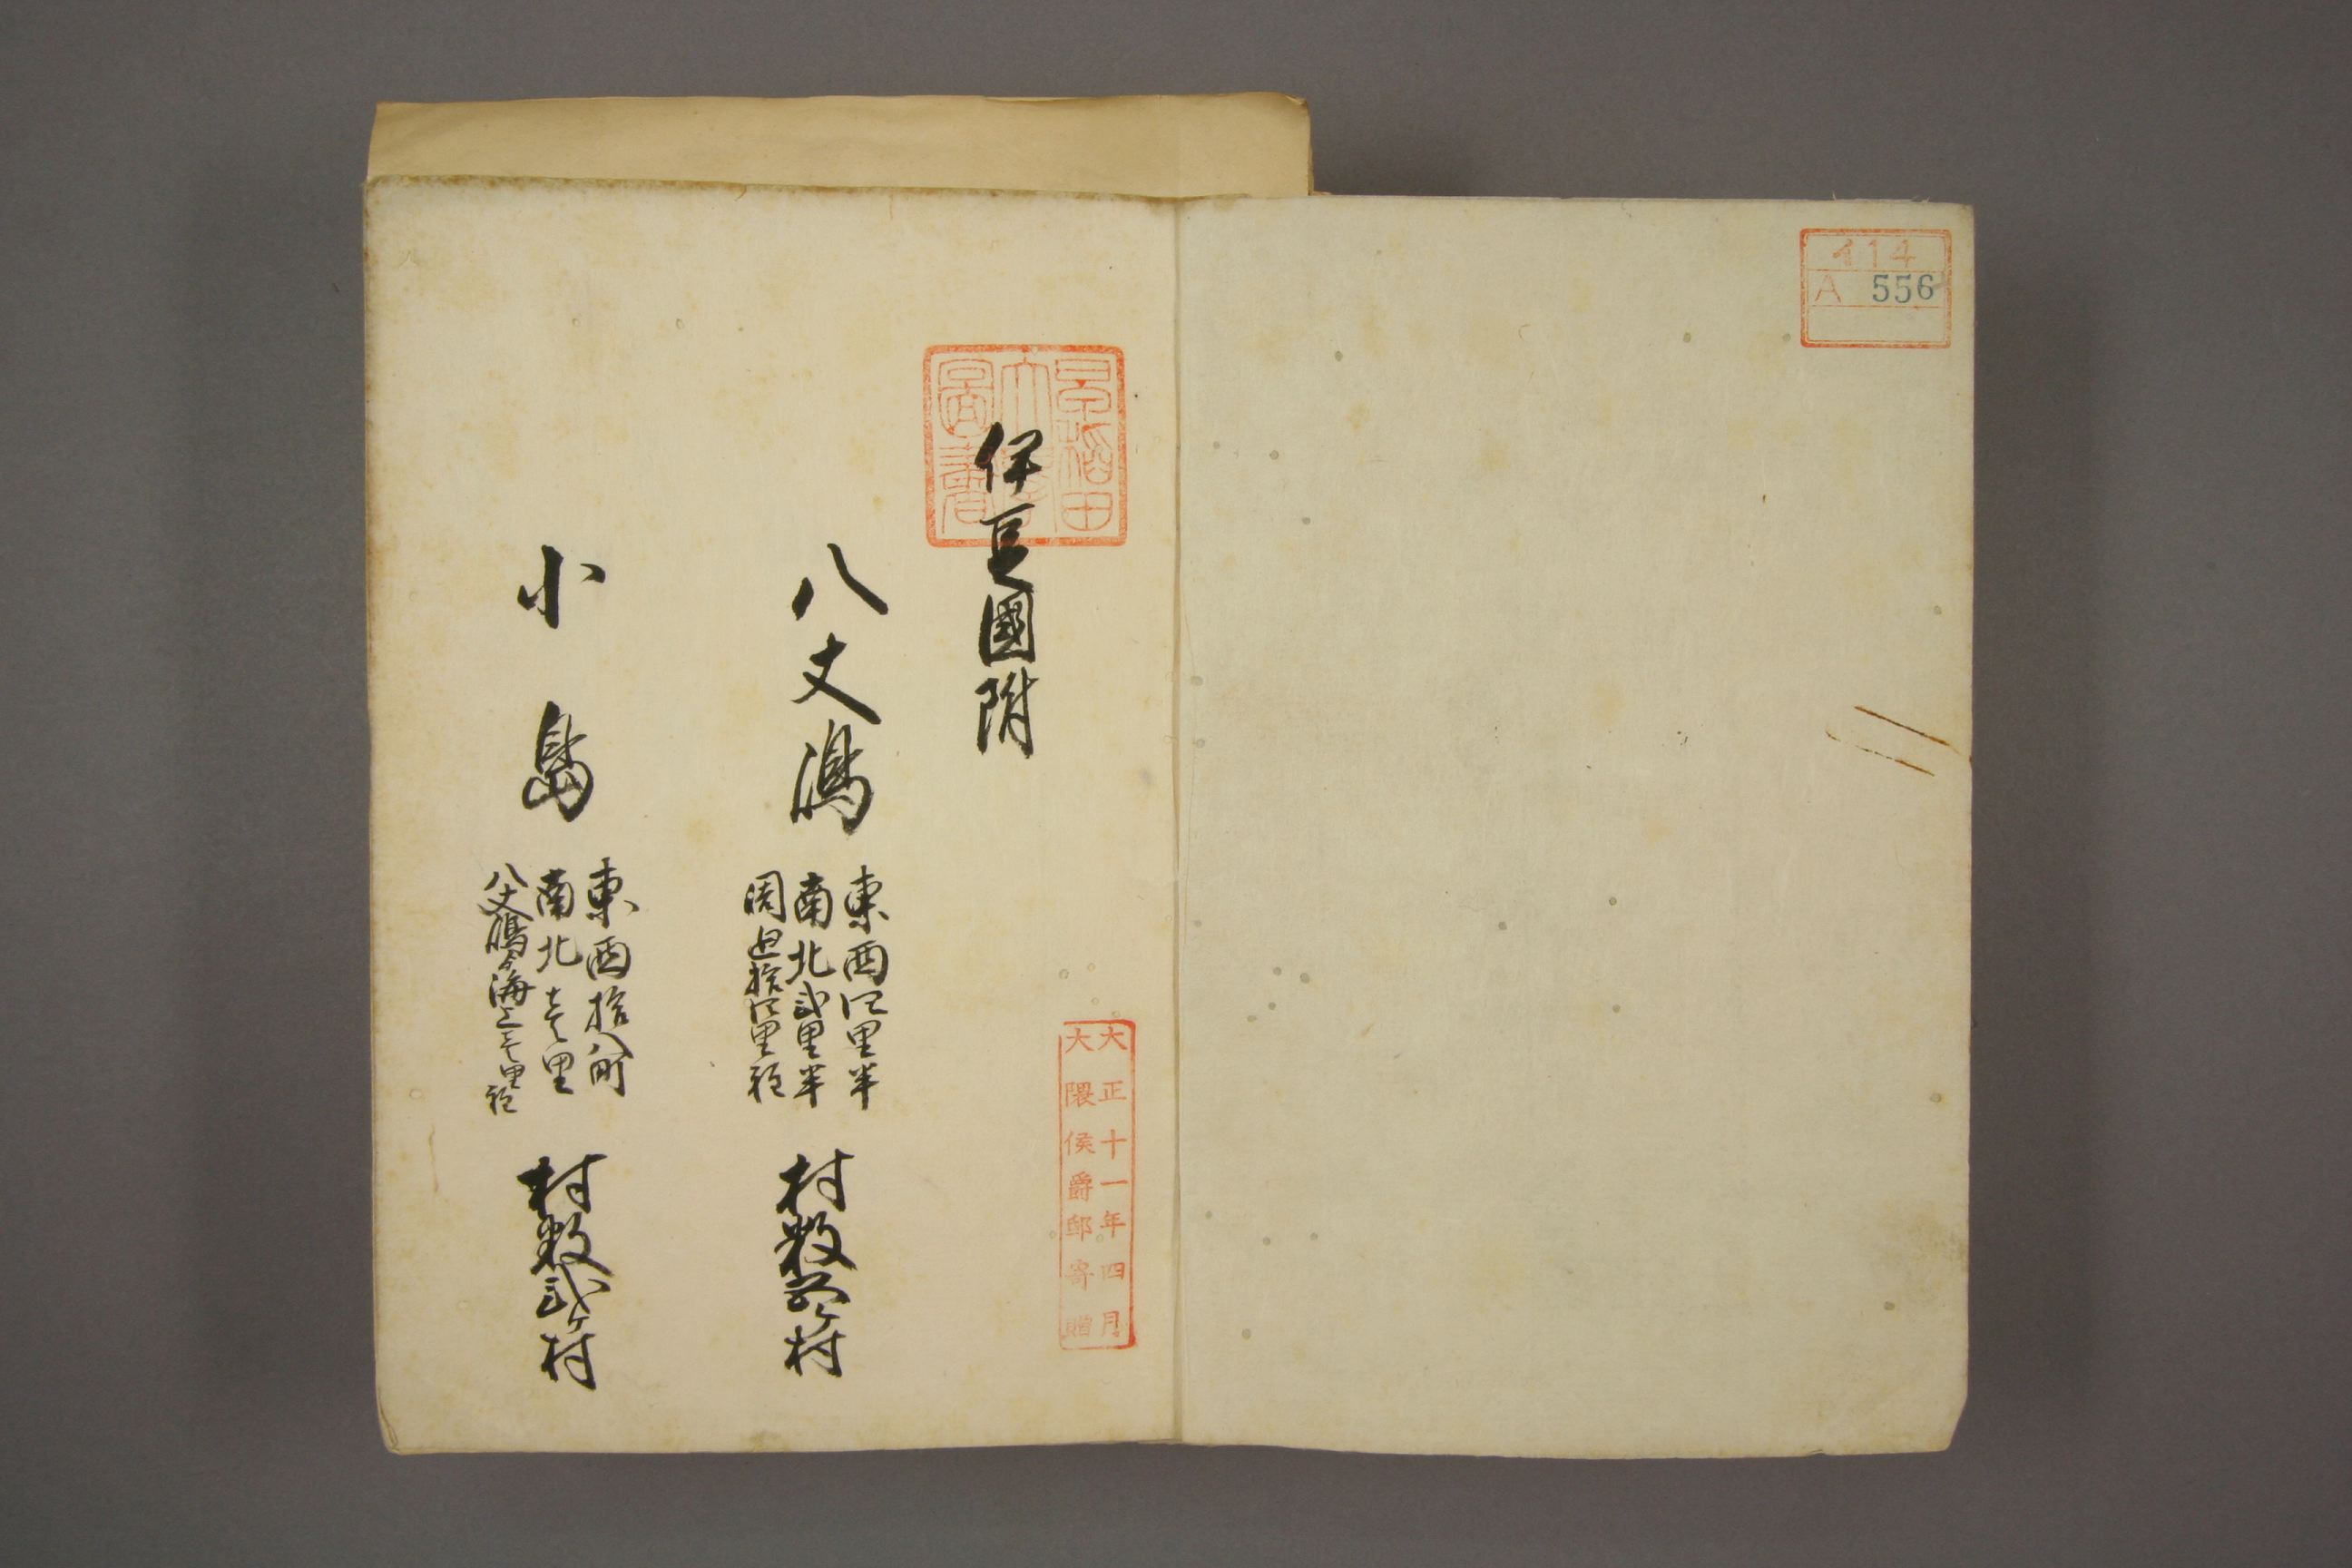 イ14
A 556
早稲田
大學
圖書
大正十一年四月
大隈侯爵邸寄贈
伊豆國附
八丈嶋
東西四里半
南北弐里半
周廻拾四里程
村数五ヶ村
小島
東西拾八町
南北壱里
八丈嶋ゟ海上壱里程
村数弐ヶ村